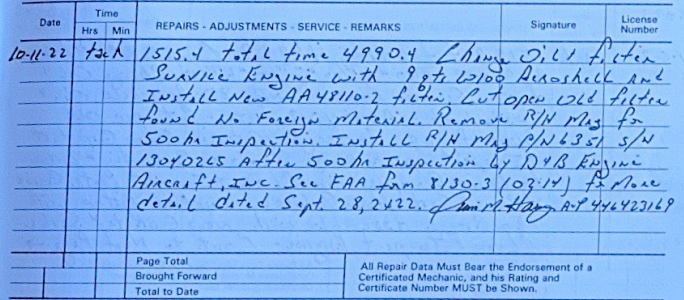 Date Time REPAIRS - ADJUSTMENTS - SERVICE - REMARKS Signature License Number
Hrs Min
10-11-22 tach 1515.4 total time 4990.4 Change Oil & filter
Service Engine with 9 qts W100 Aeroshell and
Install New AA48110-2 filter. Cut open old filter
found No Foreign Material. Remove R/H Mag for
500hr Inspection. Install R/H Mag P/N 6351 S/N
13040265 After 500hr Inspection by D&B Engine
Aircraft, INC. See FAA form 8130-3 (02-14) for More
detail dated Sept. 28, 2022. A&P 446423169
Page Total
Brought Forward
Total to Date
All Repair Data Must Bear the Endorsement of a
Certificated Mechanic, and his Rating and
Certificate Number MUST be Shown.